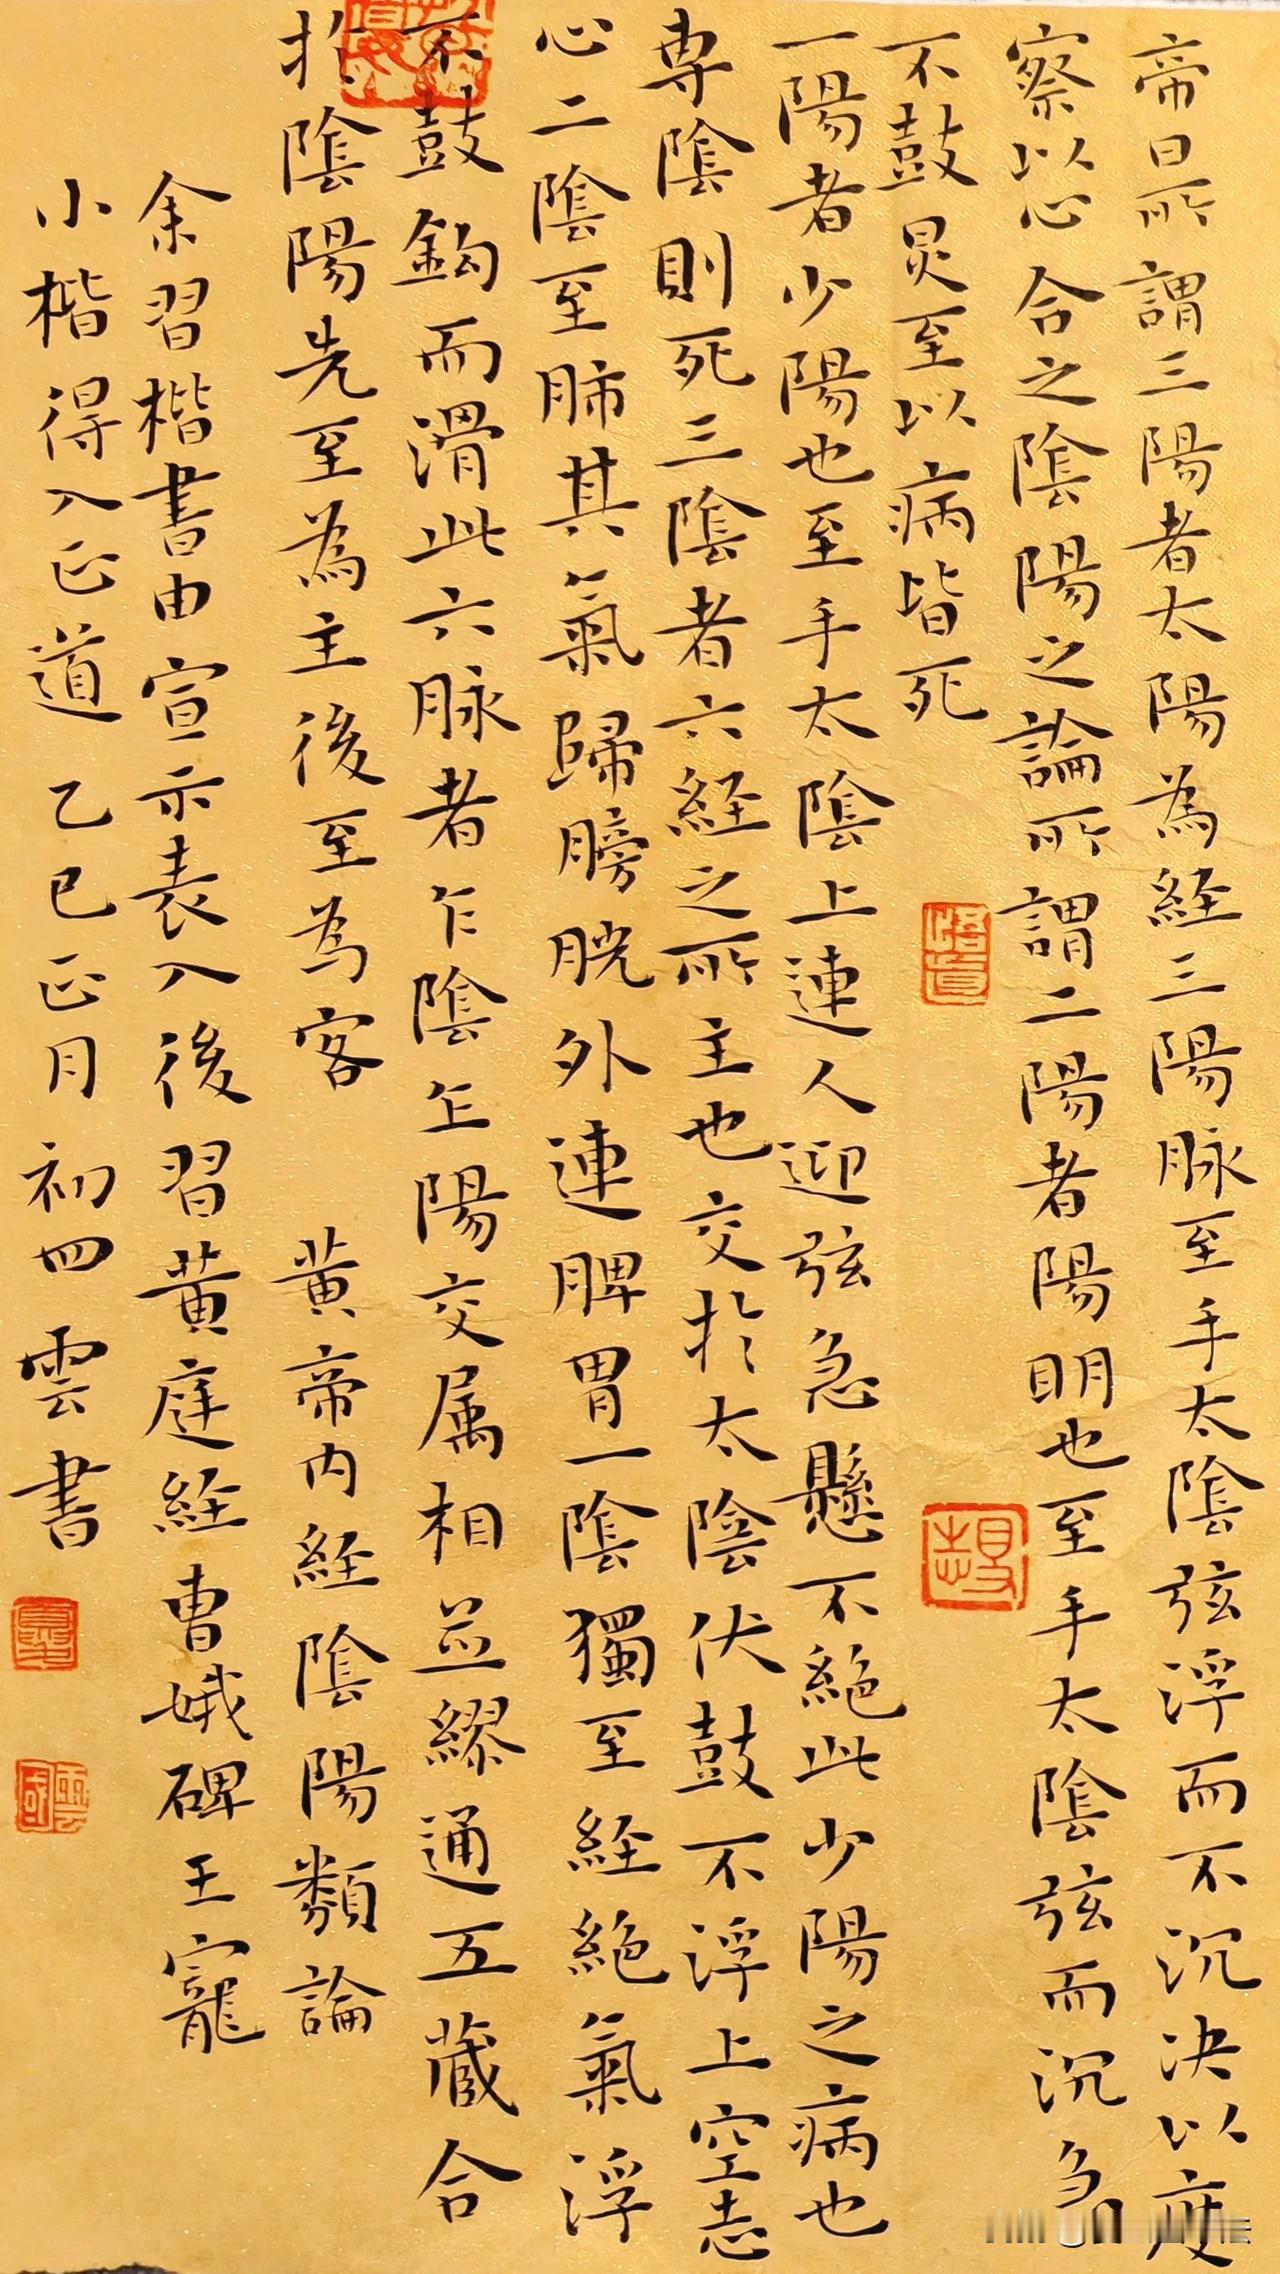 帝曰所謂三陽者太陽為経三陽脉至手太陰弦浮而不沉决以度
察以心合之陰陽之論所謂二陽者陽明也至手太陰弦而沉急
不鼓炅至以病皆死
一陽者少陽也至手太陰上連人迎弦急懸不絶此少陽之病也
専陰則死三陰者六経之所主也交於太陰伏鼓不浮上空志
心二陰至肺其氣歸膀胱外連脾胃一陰獨至経絶氣浮
不鼓鈎而滑此六脉者乍陰乍陽交属相並繆通五蔵合
於陰陽先至為主後至為客 黄帝内経陰陽類論
余習楷書由宣示表入後習黄庭経曹娥碑王寵
小楷得入正道 乙巳正月初四雲書